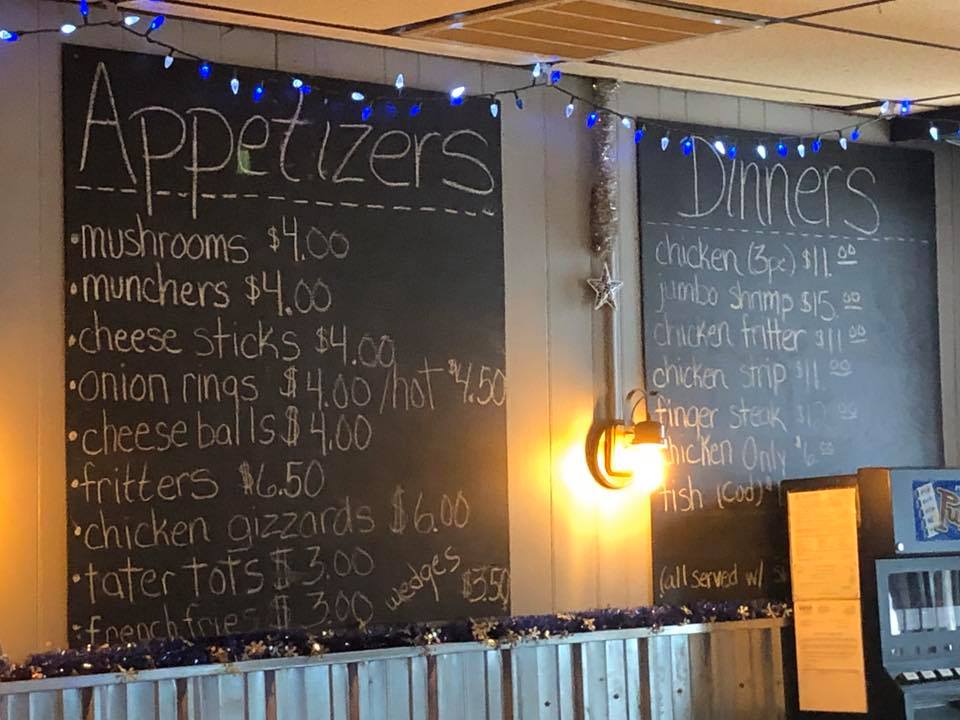 Appetizers
•mushrooms $4.00
•munchers $4.00
•cheese sticks $4.00
•onion rings $4.00/hot $4.50
•cheese balls $4.00
•fritters $6.50
•chicken gizzards $6.00
•tater tots $3.00
•french fries $3.00 wedges $3.50
Dinners
chicken (3pc) $11.00
jumbo shrimp $15.00
chicken fritter $11.00
chicken strip $11.00
finger steak
chicken Only $6.00
fish (cod)
(all served w/